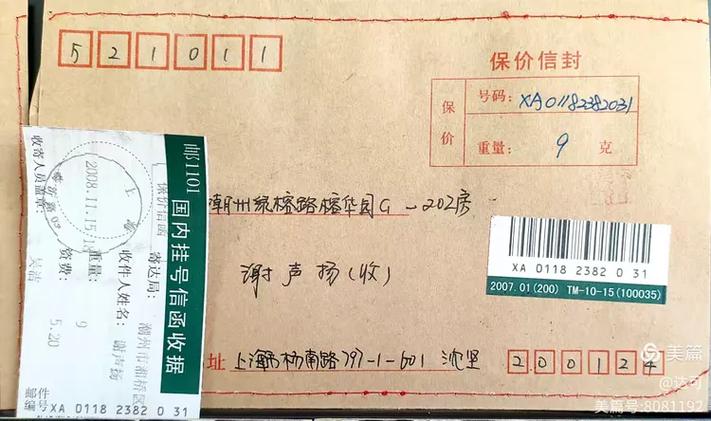 521011
保价信封
保价
号码：XA01182382031
重量：9 克
潮州绿榕路榕华园G-202房
谢声扬（收）
XA 0118 2382 0 31
2007.01(200) TM-10-15(100035)
址 上海市杨南路797-1-601 沈坚
200124
邮1101
国内挂号信函收据
保价信函
寄达局：潮州市湘桥区
收件人姓名：谢声扬
重量：9
资费：5.20
2008.11.15
上
收寄人员盖章：
吴洁
邮件
编号 XA 0118 2382 0 31
美篇
@达可
美篇号:8081192